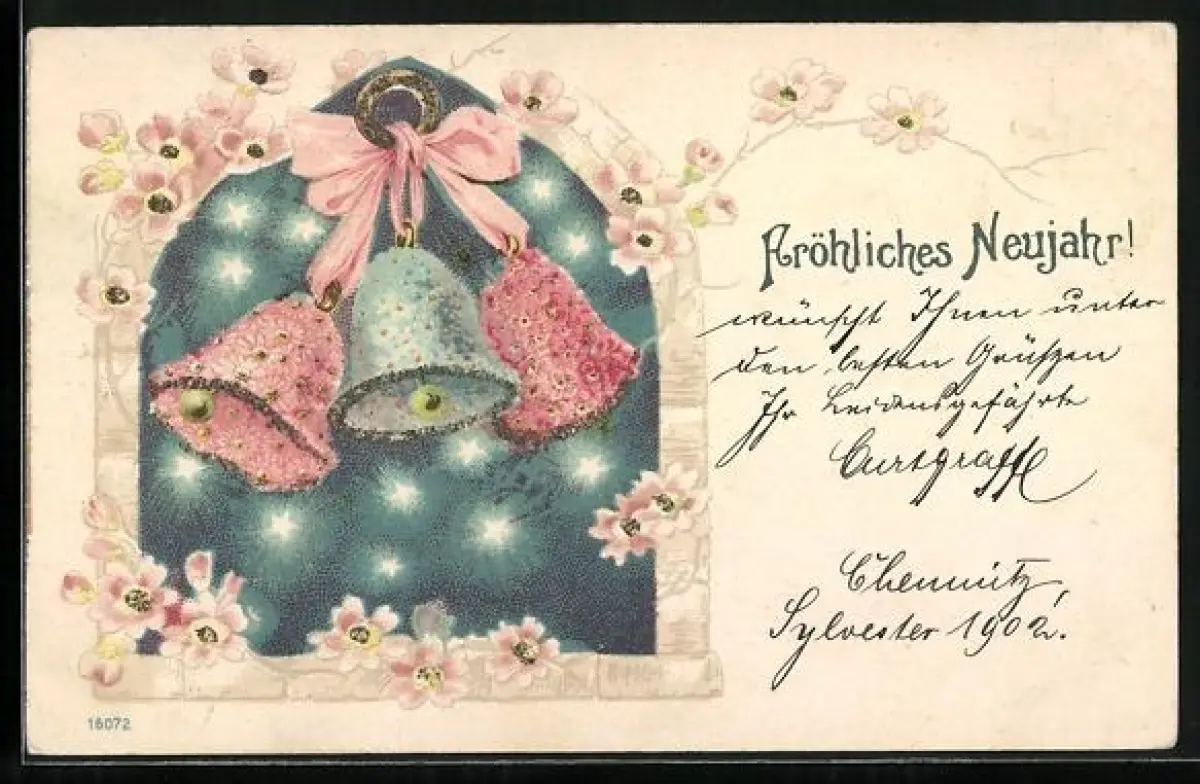 Fröhliches Neujahr!
wünscht Ihnen unter
den besten Grüßen
Ihr Leidensgefährte
Chemnitz,
Sylvester 1902.
16072